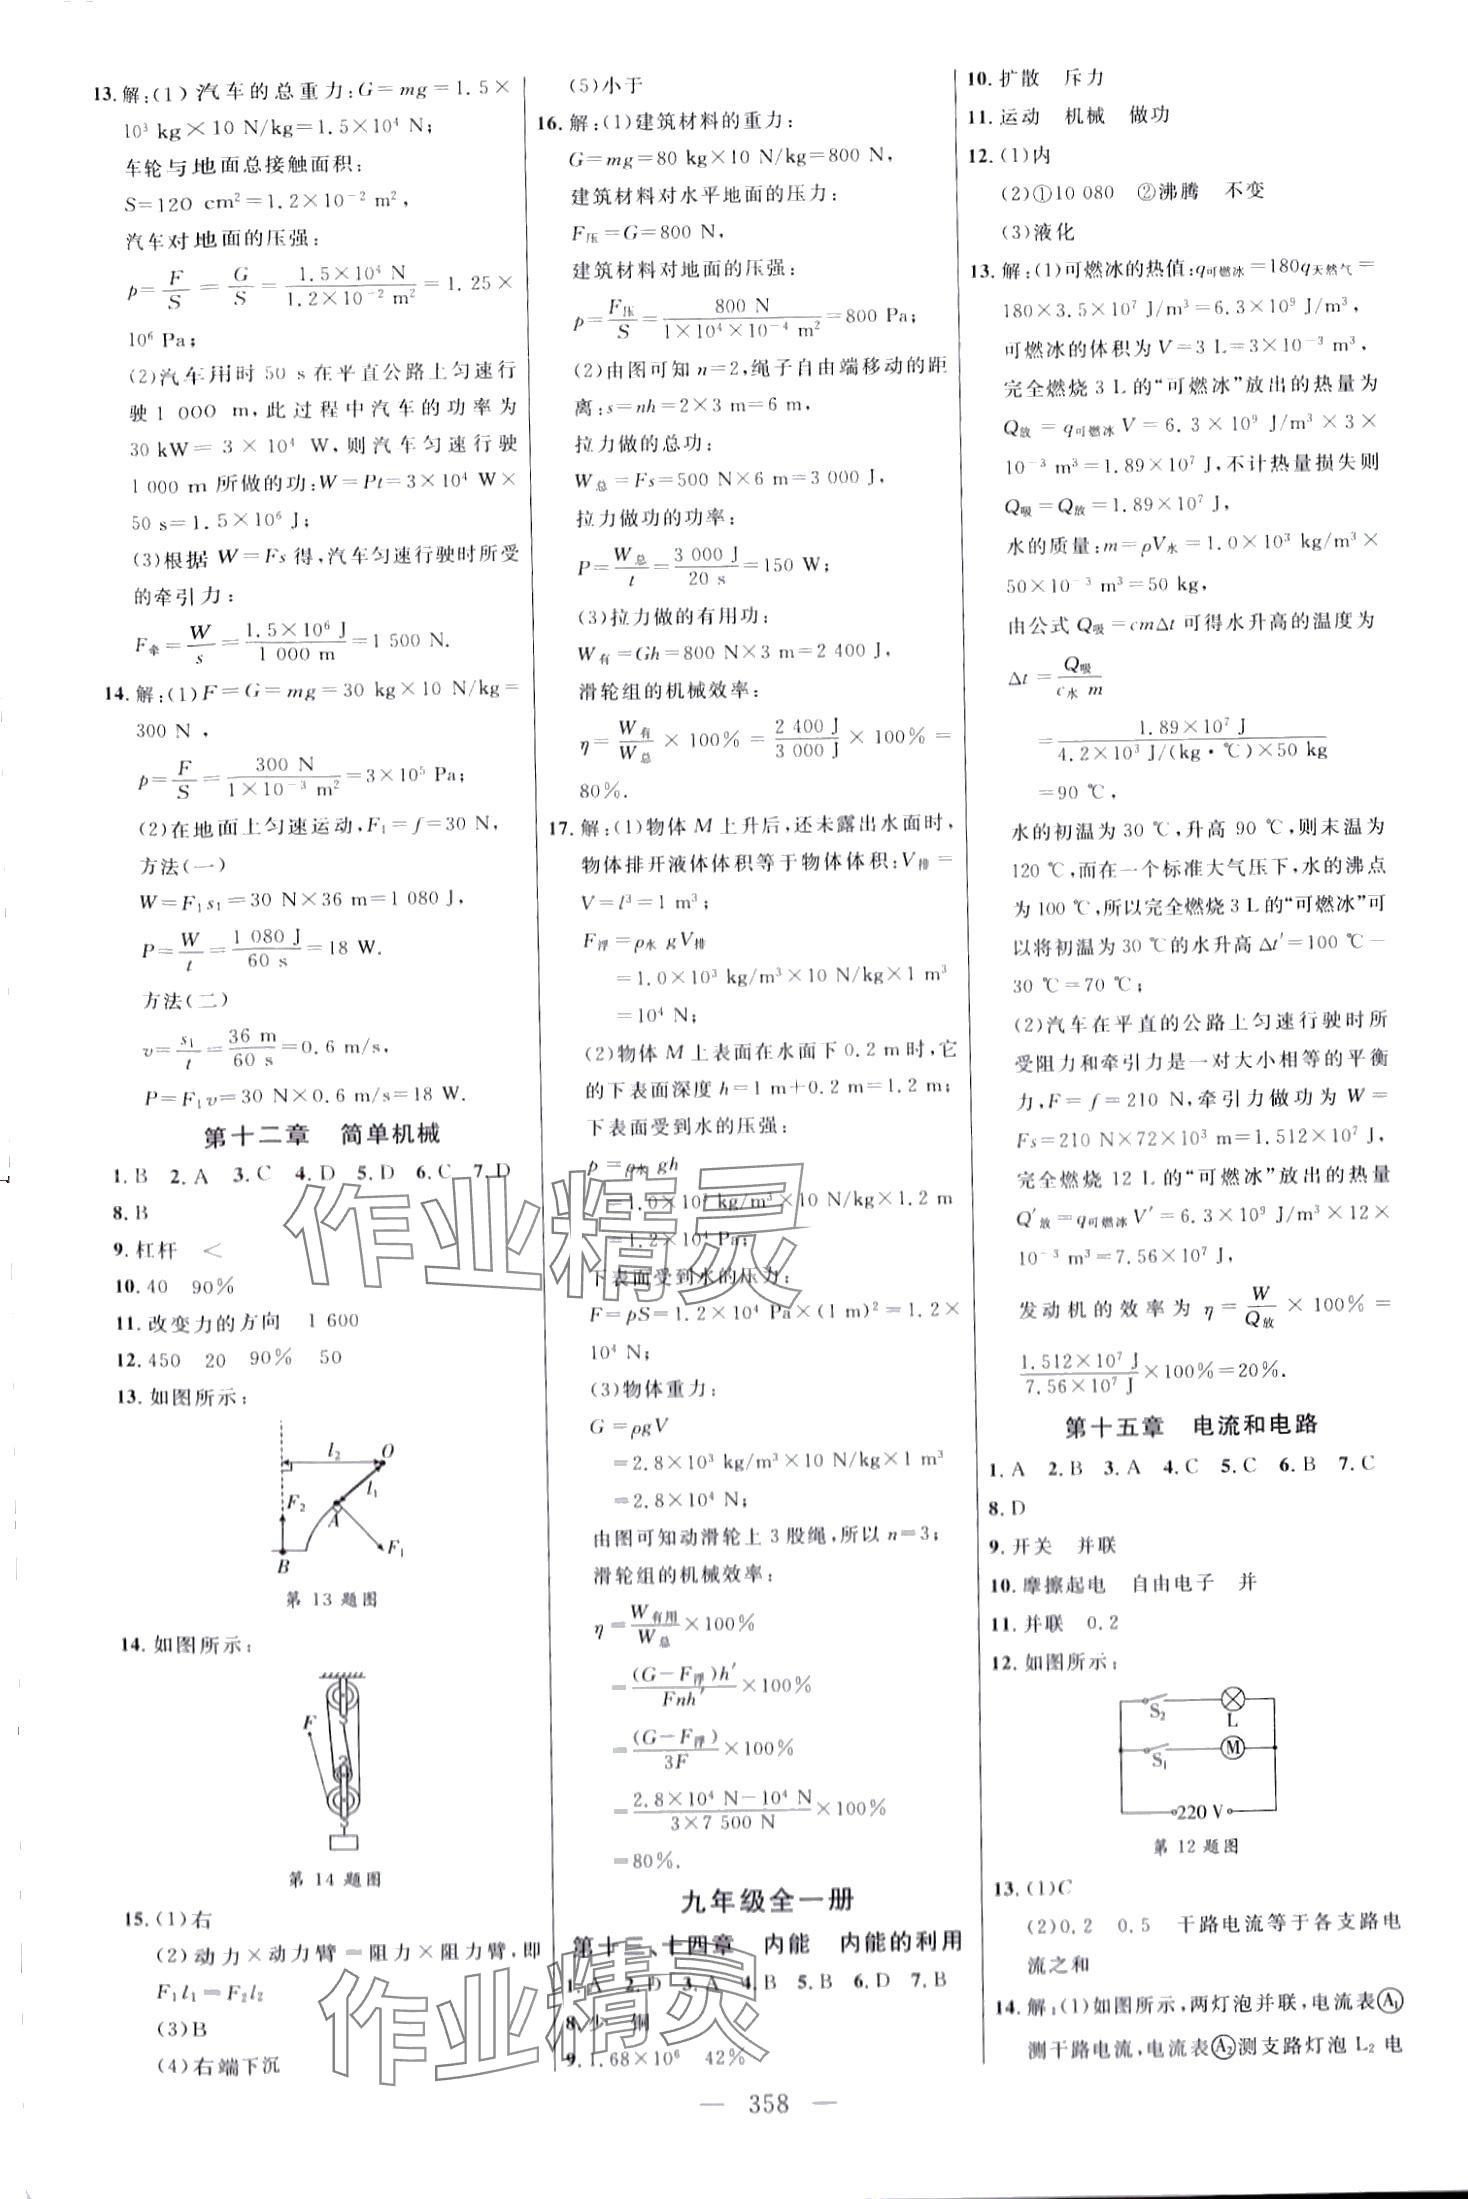 13.解:(1)汽车的总重力:G=mg=1.5×
10³ kg×10 N/kg=1.5×10⁴ N;
车轮与地面总接触面积:
S=120 cm²=1.2×10⁻² m²,
汽车对地面的压强:
p=F/S=G/S=1.5×10⁴ N/1.2×10⁻² m²=1.25×
10⁶ Pa;
(2)汽车用时 50 s 在平直公路上匀速行
驶 1 000 m,此过程中汽车的功率为
30 kW=3×10⁴ W,则汽车匀速行驶
1 000 m 所做的功:W=Pt=3×10⁴ W×
50 s=1.5×10⁶ J;
(3)根据 W=Fs 得,汽车匀速行驶时所受
的牵引力:
F牵=W/s=1.5×10⁶ J/1 000 m=1 500 N.
14.解:(1)F=G=mg=30 kg×10 N/kg=
300 N ,
p=F/S=300 N/1×10⁻³ m²=3×10⁵ Pa;
(2)在地面上匀速运动,F₁=f=30 N,
方法(一)
W=F₁s₁=30 N×36 m=1 080 J,
P=W/t=1 080 J/60 s=18 W.
方法(二)
v=s₁/t=36 m/60 s=0.6 m/s,
P=F₁v=30 N×0.6 m/s=18 W.
第十二章 简单机械
1.B 2.A 3.C 4.D 5.D 6.C 7.D
8.B
9.杠杆 <
10.40 90%
11.改变力的方向 1 600
12.450 20 90% 50
13.如图所示:
l₂ O
F₂ l₁
A F₁
B
第 13 题图
14.如图所示:
F
第 14 题图
15.(1)右
(2)动力×动力臂=阻力×阻力臂,即
F₁l₁=F₂l₂
(3)B
(4)右端下沉
(5)小于
16.解:(1)建筑材料的重力:
G=mg=80 kg×10 N/kg=800 N,
建筑材料对水平地面的压力:
F压=G=800 N,
建筑材料对地面的压强:
p=F压/S=800 N/1×10⁴×10⁻⁴ m²=800 Pa;
(2)由图可知 n=2,绳子自由端移动的距
离:s=nh=2×3 m=6 m,
拉力做的总功:
W总=Fs=500 N×6 m=3 000 J,
拉力做功的功率:
P=W总/t=3 000 J/20 s=150 W;
(3)拉力做的有用功:
W有=Gh=800 N×3 m=2 400 J,
滑轮组的机械效率:
η=W有/W总×100%=2 400 J/3 000 J×100%=
80%.
17.解:(1)物体 M 上升后,还未露出水面时,
物体排开液体体积等于物体体积:V排=
V=l³=1 m³;
F浮=ρ水 gV排
=1.0×10³ kg/m³×10 N/kg×1 m³
=10⁴ N;
(2)物体 M 上表面在水面下 0.2 m 时,它
的下表面深度 h=1 m+0.2 m=1.2 m;
下表面受到水的压强:
p=ρ水 gh
=1.0×10³ kg/m³×10 N/kg×1.2 m
=1.2×10⁴ Pa;
下表面受到水的压力:
F=pS=1.2×10⁴ Pa×(1 m)²=1.2×
10⁴ N;
(3)物体重力:
G=ρgV
=2.8×10³ kg/m³×10 N/kg×1 m³
=2.8×10⁴ N;
由图可知动滑轮上 3 股绳,所以 n=3;
滑轮组的机械效率:
η=W有用/W总×100%
=(G-F浮)h′/Fnh′×100%
=(G-F浮)/3F×100%
=2.8×10⁴ N-10⁴ N/3×7 500 N×100%
=80%.
九年级全一册
第十三、十四章 内能 内能的利用
1.A 2.D 3.A 4.B 5.B 6.D 7.B
8.少 铜
9.1.68×10⁶ 42%
10.扩散 斥力
11.运动 机械 做功
12.(1)内
(2)①10 080 ②沸腾 不变
(3)液化
13.解:(1)可燃冰的热值:q可燃冰=180q天然气=
180×3.5×10⁷ J/m³=6.3×10⁹ J/m³,
可燃冰的体积为 V=3 L=3×10⁻³ m³,
完全燃烧 3 L 的“可燃冰”放出的热量为
Q放=q可燃冰V=6.3×10⁹ J/m³×3×
10⁻³ m³=1.89×10⁷ J,不计热量损失则
Q吸=Q放=1.89×10⁷ J,
水的质量:m=ρV水=1.0×10³ kg/m³×
50×10⁻³ m³=50 kg,
由公式 Q吸=cmΔt 可得水升高的温度为
Δt=Q吸/c水 m
=1.89×10⁷ J/4.2×10³ J/(kg·℃)×50 kg
=90 ℃,
水的初温为 30 ℃,升高 90 ℃,则末温为
120 ℃,而在一个标准大气压下,水的沸点
为 100 ℃,所以完全燃烧 3 L 的“可燃冰”可
以将初温为 30 ℃的水升高 Δt′=100 ℃-
30 ℃=70 ℃;
(2)汽车在平直的公路上匀速行驶时所
受阻力和牵引力是一对大小相等的平衡
力,F=f=210 N,牵引力做功为 W=
Fs=210 N×72×10³ m=1.512×10⁷ J,
完全燃烧 12 L 的“可燃冰”放出的热量
Q′放=q可燃冰V′=6.3×10⁹ J/m³×12×
10⁻³ m³=7.56×10⁷ J,
发动机的效率为 η=W/Q放×100%=
1.512×10⁷ J/7.56×10⁷ J×100%=20%.
第十五章 电流和电路
1.A 2.B 3.A 4.C 5.C 6.B 7.C
8.D
9.开关 并联
10.摩擦起电 自由电子 并
11.并联 0.2
12.如图所示:
S₂ L
S₁ M
220 V
第 12 题图
13.(1)C
(2)0.2 0.5 干路电流等于各支路电
流之和
14.解:(1)如图所示,两灯泡并联,电流表Ⓐ₁
测干路电流,电流表Ⓐ₂测支路灯泡 L₂ 电
— 358 —
作业精灵
作业精灵